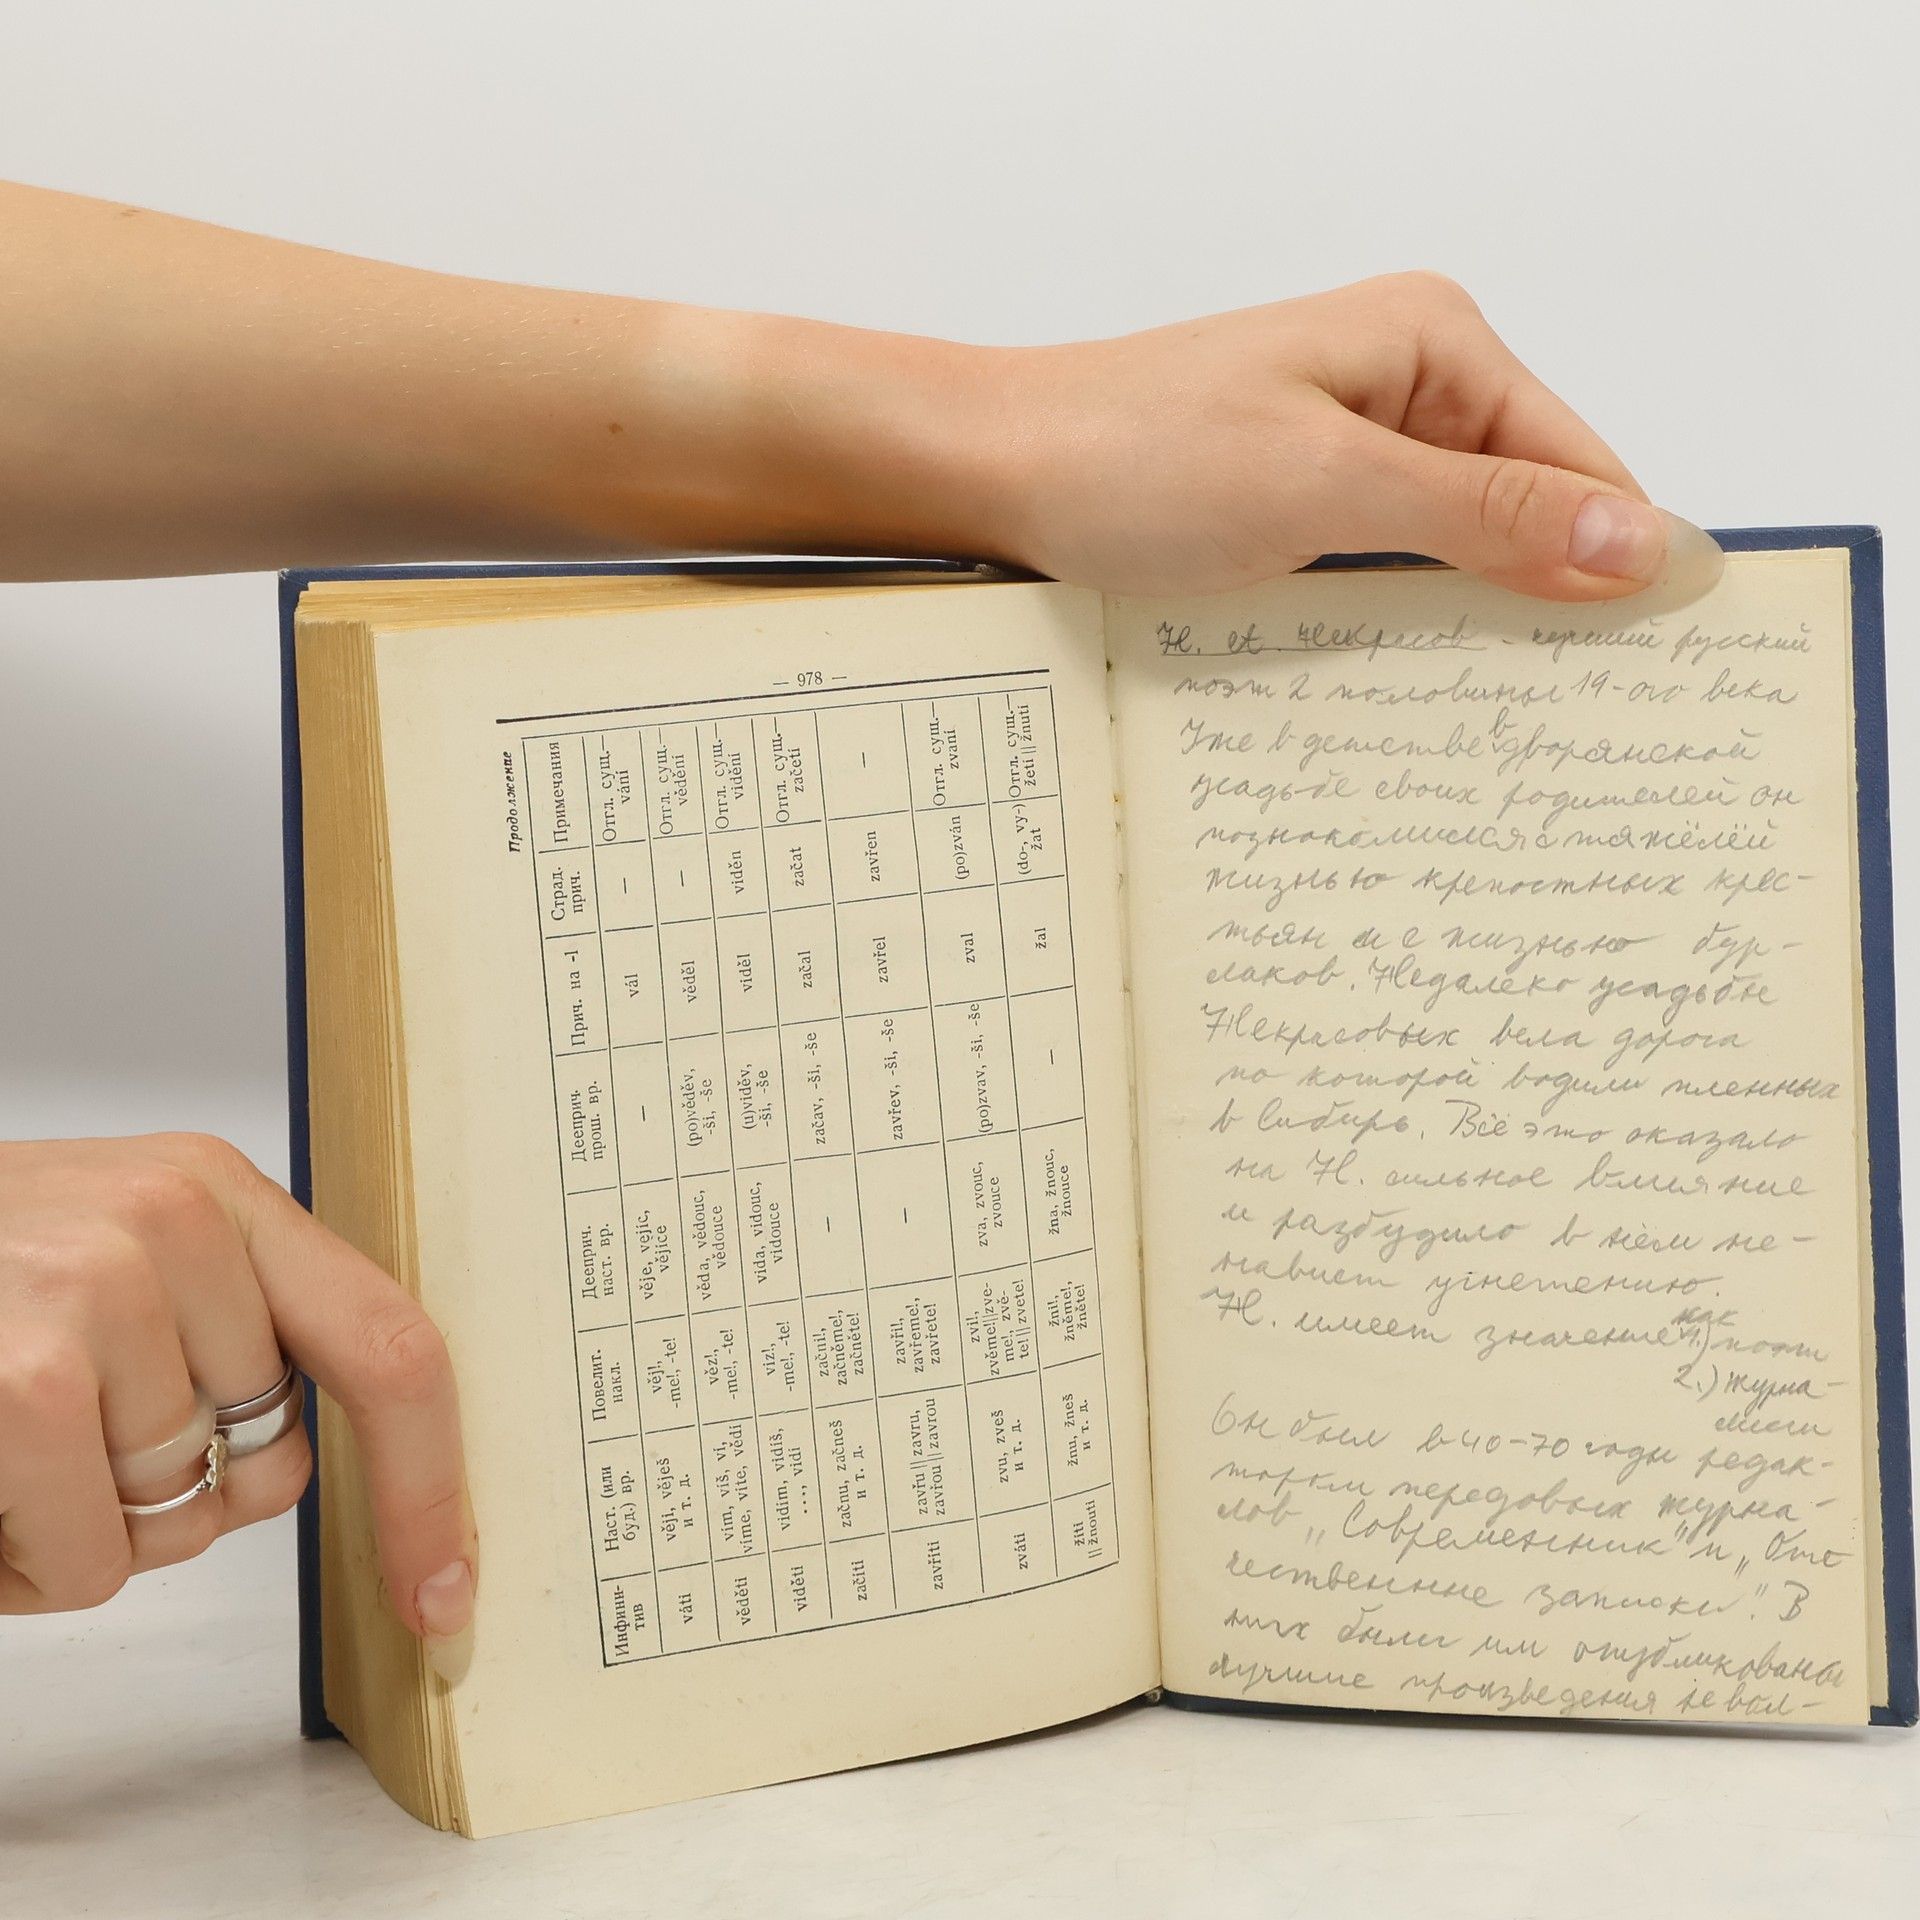 — 978 —
Продолжение
Инфинитив Наст. (или буд.) вр. Повелит. накл. Дееприч. наст. вр. Дееприч. прош. вр. Прич. на -l Страд. прич. Примечания
váti věji, věješ и т. д. věj!, -me!, -te! věje, vějíc, vějíce — vál — Отгл. сущ.— vání
věděti vím, víš, ví, víme, víte, vědí věz!, -me!, -te! věda, vědouc, vědouce (po)věděv, -ši, -še věděl — Отгл. сущ.— vědění
viděti vidím, vidíš, ..., vidí viz!, -me!, -te! vida, vidouc, vidouce (u)viděv, -ši, -še viděl viděn Отгл. сущ.— vidění
začíti začnu, začneš и т. д. začni!, začněme!, začněte! — začav, -ši, -še začal začat Отгл. сущ.— začetí
zavříti zavřu || zavru, zavřou || zavrou zavři!, zavřeme!, zavřete! — zavřev, -ši, -še zavřel zavřen —
zváti zvu, zveš и т. д. zvi!, zvěme!||zveme!, zvěte! || zvete! zva, zvouc, zvouce (po)zvav, -ši, -še zval (po)zván Отгл. сущ.— zvaní
žíti || žnouti žnu, žneš и т. д. žni!, žněme!, žněte! žna, žnouc, žnouce — žal (do-, vy-) žat Отгл. сущ.— žetí || žnutí
Н. А. Некрасов - русский
поэт 2 половины 19-ого века
Уже в детстве в дворянской
усадьбе своих родителей он
познакомился с тяжёлей
жизнью крепостных крес-
тьян и с жизнью бур-
лаков. Недалеко усадьбы
Некрасовых вела дорога
по которой водили пленных
в Сибирь. Всё это оказало
на Н. сильное влияние
и разбудило в нём не-
нависть угнетению.
Н. имеет значение как 1.) поэт
2.) журна-
лист
Он был в 40-70 годы редак-
тором передовых журна-
лов „Современник" и „Оте-
чественные записки". В
них были им опубликованы
лучшие произведения